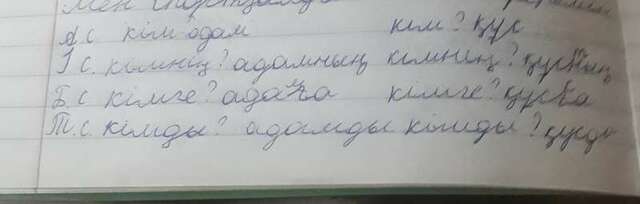 Мен
А.С кім адам кім? құс
І.С. кімнің? адамның кімнің? құстың
Б.С кімге? адамға кімге? құсқа
Т.С. кімды? адамды кімды? құсды